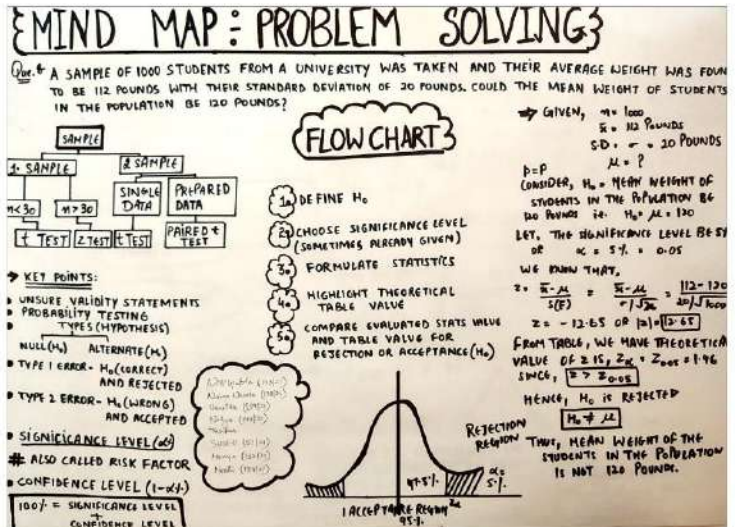 MIND MAP : PROBLEM SOLVING
Que. A SAMPLE OF 1000 STUDENTS FROM A UNIVERSITY WAS TAKEN AND THEIR AVERAGE WEIGHT WAS FOUN
TO BE 112 POUNDS WITH THEIR STANDARD DEVIATION OF 20 POUNDS. COULD THE MEAN WEIGHT OF STUDENTS
IN THE POPULATION BE 120 POUNDS?
SAMPLE
1. SAMPLE
2 SAMPLE
n<30
n>30
SINGLE DATA
PREPARED DATA
t TEST
Z TEST
t TEST
PAIRED t TEST
→ KEY POINTS:
UNSURE VALIDITY STATEMENTS
PROBABILITY TESTING
TYPES (HYPOTHESIS)
NULL(H₀) ALTERNATE(H₁)
TYPE 1 ERROR- H₀(CORRECT)
AND REJECTED
TYPE 2 ERROR- H₀(WRONG)
AND ACCEPTED
SIGNIFICANCE LEVEL(α%)
# ALSO CALLED RISK FACTOR
CONFIDENCE LEVEL (1-α%)
100% = SIGNIFICANCE LEVEL
+
CONFIDENCE LEVEL
FLOW CHART
1. DEFINE H₀
2. CHOOSE SIGNIFICANCE LEVEL
(SOMETIMES ALREADY GIVEN)
3. FORMULATE STATISTICS
4. HIGHLIGHT THEORETICAL
TABLE VALUE
5. COMPARE EVALUATED STATS VALUE
AND TABLE VALUE FOR
REJECTION OR ACCEPTANCE(H₀)
REJECTION
REGION
47.5%
α=
5%
Zα
ACCEPTANCE REGION
95%
⇒ GIVEN, n = 1000
x̄ = 112 POUNDS
S.D. σ = 20 POUNDS
μ = ?
P=P
CONSIDER, H₀ = MEAN WEIGHT OF
STUDENTS IN THE POPULATION BE
120 POUNDS i.e. H₀: μ = 120
LET, THE SIGNIFICANCE LEVEL BE 5%
OR α = 5% = 0.05
WE KNOW THAT,
Z = x̄-μ / S(E) = x̄-μ / σ/√n = 112-120 / 20/√1000
Z = -12.65 OR |Z| = 12.65
FROM TABLE, WE HAVE THEORETICA
VALUE OF Z IS, Zα = Z0.05 = 1.96
SINCE, Z > Z0.05
HENCE, H₀ IS REJECTED
H₀ ≠ μ
THUS, MEAN WEIGHT OF THE
STUDENTS IN THE POPULATION
IS NOT 120 POUNDS.